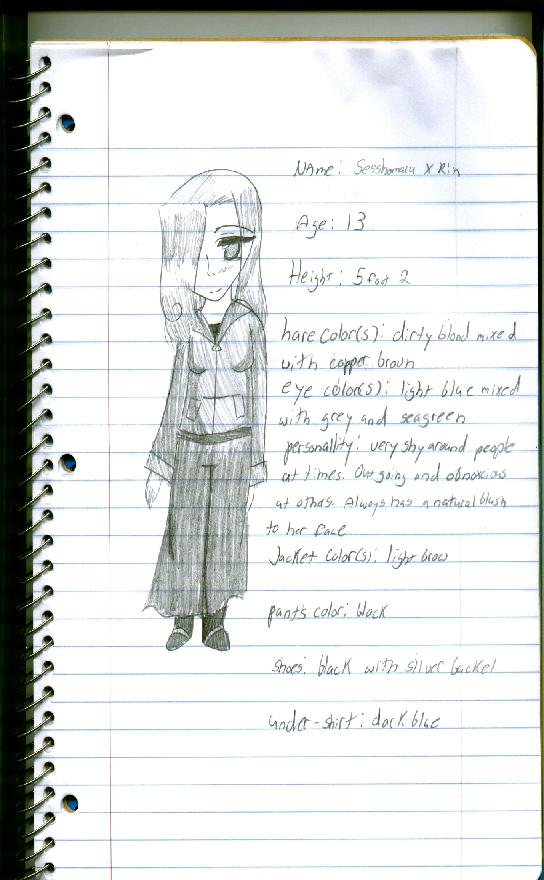 Name: Sesshomaru X Rin
Age: 13
Height: 5 foot 2
hare color(s): dirty blond mixed
with copper broun
eye color(s): light blue mixed
with grey and seagreen
personallity: very shy around people
at times. Outgoing and obnoxious
at othas. Always has a natural blush
to her face
Jacket color(s): light brow
pants color: black
shoes: black with silver backel
under-shirt: dark blue